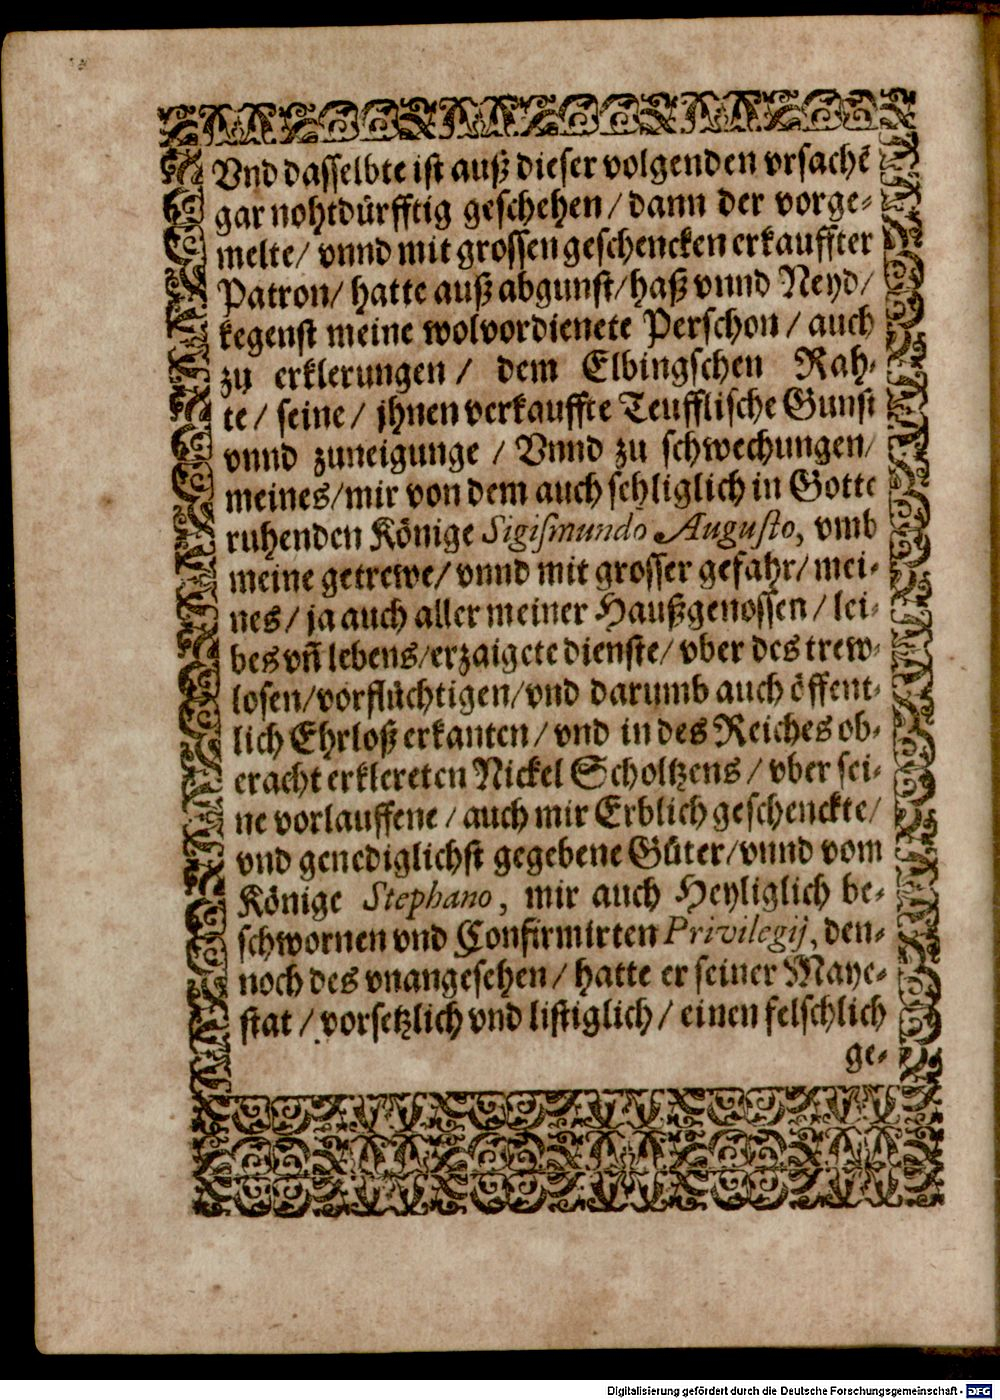 Vnd dasselbte ist auß dieser volgenden vrsachē
gar nohtdürfftig geschehen/ dann der vorge-
melte/ vnnd mit grossen geschencken erkauffter
Patron/ hatte auß abgunst/ haß vnnd Neyd/
kegenst meine wolvordienete Perschon / auch
zu erklerungen / dem Elbingschen Rah-
te / seine / jhnen verkauffte Teufflische Gunst
vnnd zuneigunge / Vnnd zu schwechungen/
meines/mir von dem auch sehliglich in Gotte
ruhenden Könige Sigiſmundo Auguſto, vmb
meine getrewe/ vnnd mit grosser gefahr/ mei-
nes / ja auch aller meiner Haußgenossen / lei-
bes vñ lebens/erzaigete dienste/ vber des trew-
losen/vorflüchtigen/vnd darumb auch öffent-
lich Ehrloß erkanten/ vnd in des Reiches ob-
eracht erklereten Nickel Scholtzens / vber sei-
ne vorlauffene / auch mir Erblich geschenckte/
vnd genediglichst gegebene Güter/vnnd vom
Könige Stephano, mir auch Heyliglich be-
schwornen vnd Confirmirten Privilegij, den-
noch des vnangesehen / hatte er seiner Maye-
stat / vorsetzlich vnd listiglich / einen felschlich
ge-
Digitalisierung gefördert durch die Deutsche Forschungsgemeinschaft - DFG